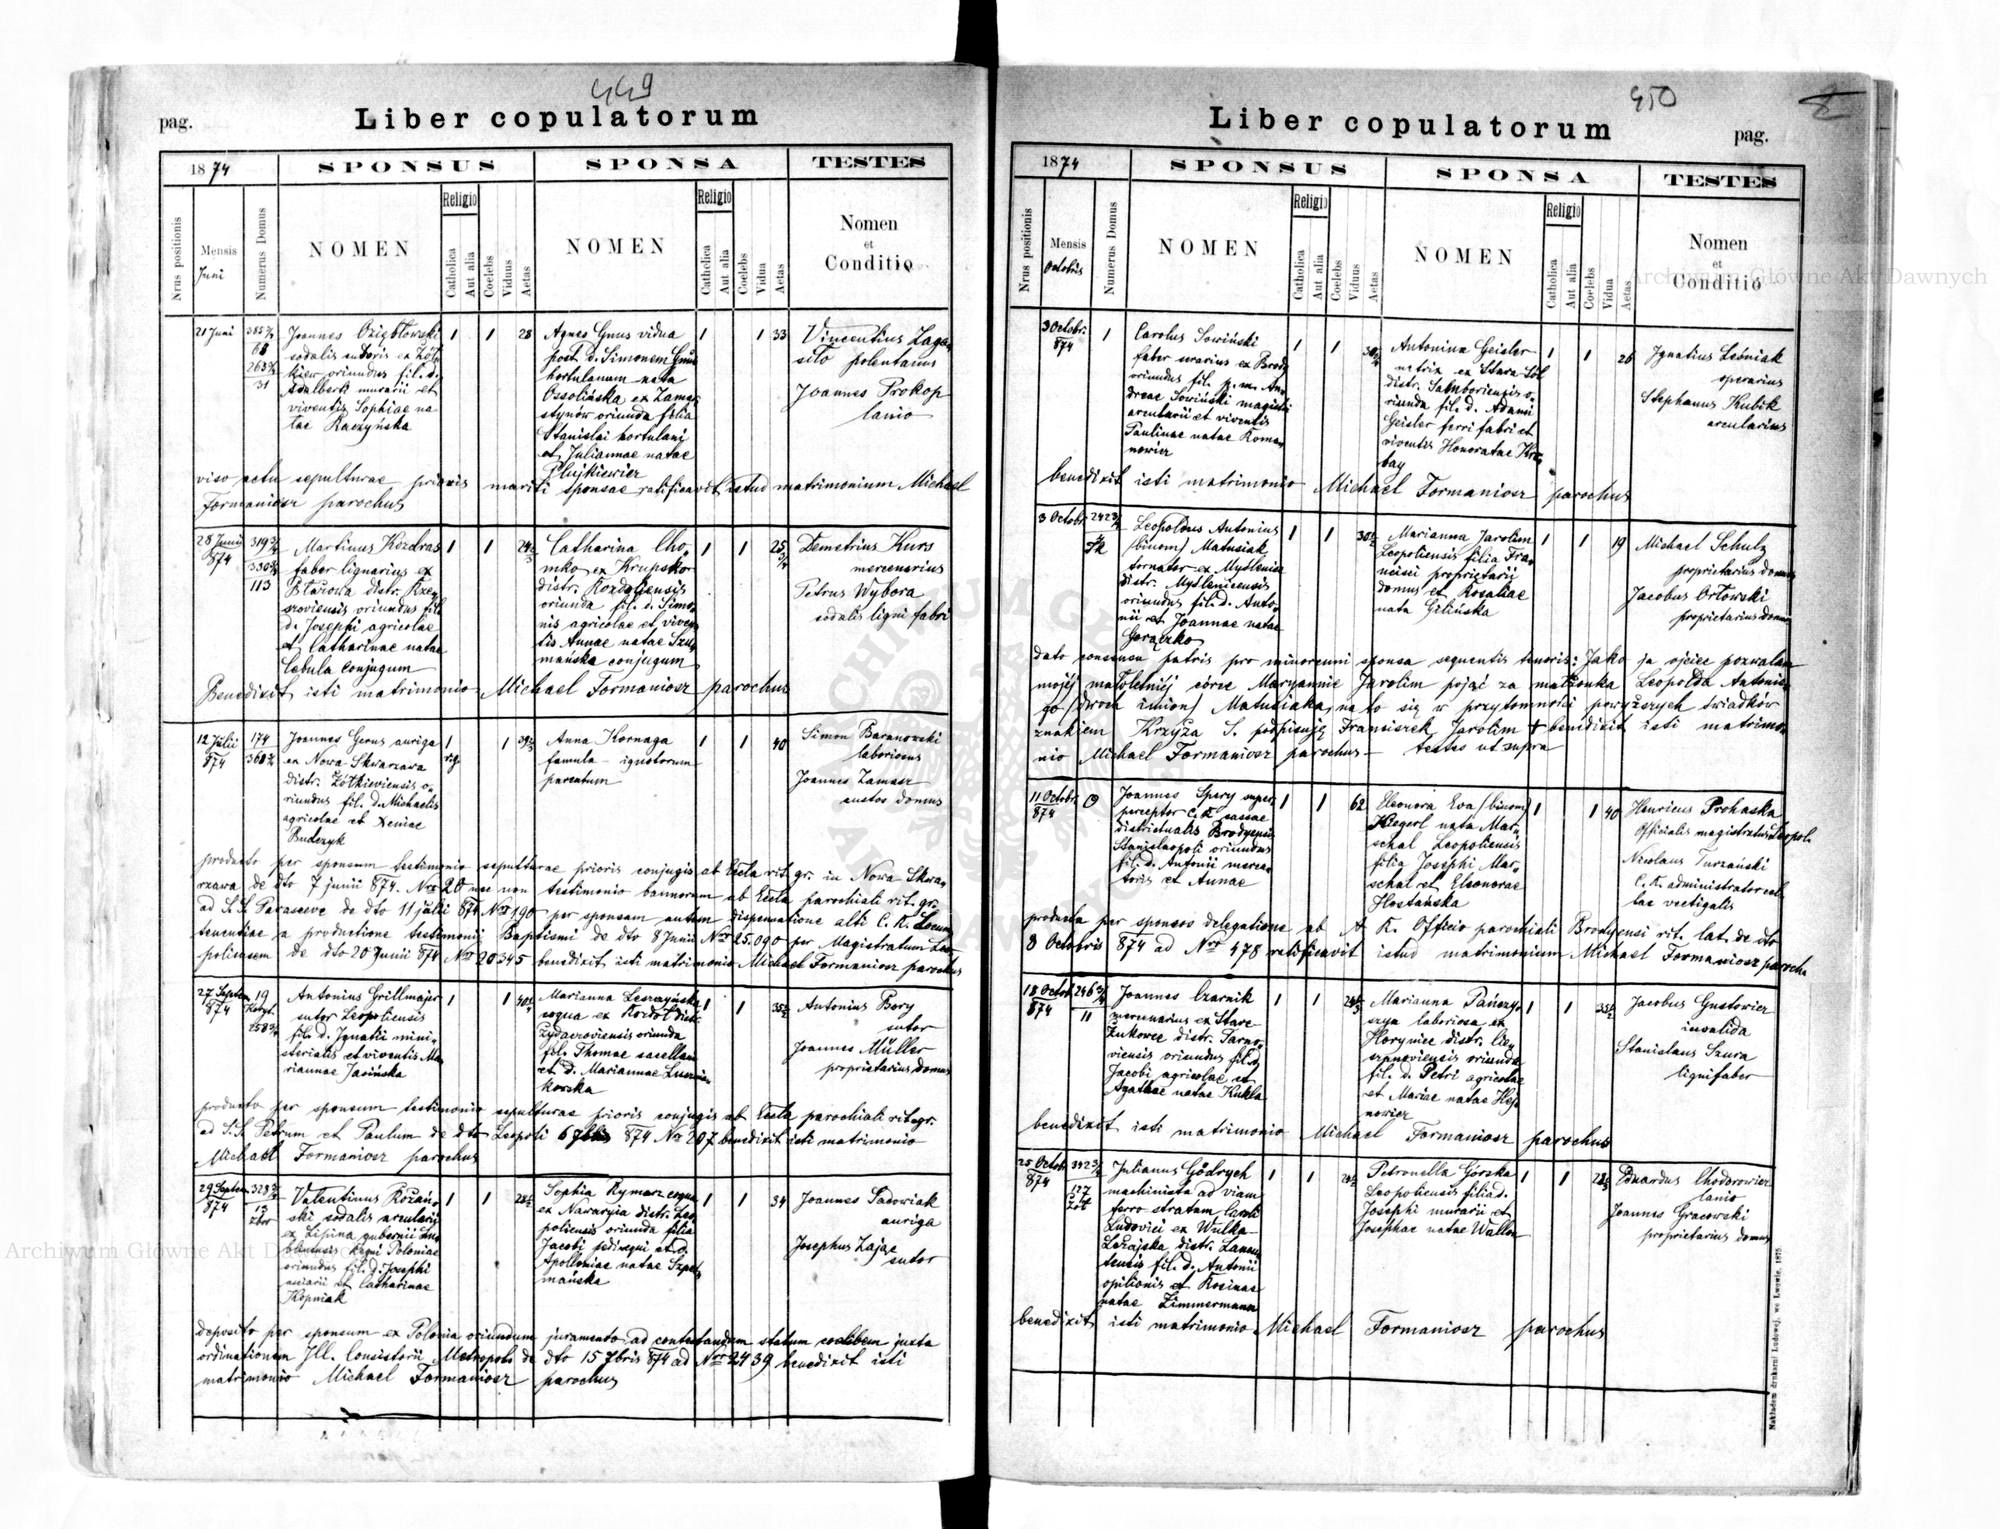 449
Liber copulatorum
pag.
1874
SPONSUS
SPONSA
TESTES
Nrus positionis
Mensis
Juni
Numerus Domus
NOMEN
Religio
Catholica
Aut alia
Coelebs
Viduus
Aetas
NOMEN
Religio
Catholica
Aut alia
Coelebs
Vidua
Aetas
Nomen
et
Conditio
21 Juni
Joannes
sodalis sutoris ex Żół-
kiew oriundus fil. d.
Adalberti murarii et
viventis Sophiae na-
tae Raczyńska
1 1 28
Agnes Gnus vidua
post d. Simonem Gnus
hortulanum nata
Ossolińska ex Zamar-
stynów oriunda filia
Stanislai hortulani
et Juliannae natae
1 1 33
Vincentius Zaga-
Joannes Prokop
lanio
viso actu sepulturae prioris mariti sponsae ratificavit istud matrimonium Michael
Formaniosz parochus
28 Junii
874
319 2/4
330 2/4
113
Martinus Kozdras
faber lignarius ex
distr.
oriundus fil.
d. Josephi agricolae
et Catharinae natae
Cebula conjugum
1 1
Catharina Cho-
mko ex Krupsko
distr.
oriunda fil. d. Simo-
nis agricolae et viven-
tis Annae natae Szu-
mańska conjugum
1 1
Demetrius Kurs
mercenarius
Petrus Wybora
sodalis ligni fabri
Benedixit isti matrimonio Michael Formaniosz parochus
12 Julii
874
174
Joannes Gerus auriga
ex Nowa Skwarzawa
distr. Żółkieviensis o-
riundus fil. d. Michaelis
agricolae et Xeniae
Budczyk
1
r. g.
1
Anna Hornaga
famula ignotorum
parentum
1 1 40
Simon Baranowski
laboriosus
Joannes Zamasz
custos domus
producto per sponsum testimonio sepulturae prioris conjugis ab Eccla rit. gr. in Nowa Skwa-
rzawa de dto 7 junii 874. Nro 20 nec non testimonio bannorum ab Eccla parochiali rit. gr.
ad S. S. Parasceve de dto 11 julii 874 Nro 190 per sponsam autem dispensatione alti C. K. Locum-
tenentiae a productione testimonii Baptismi de dto 8 Junii Nro 25.090 per Magistratum Leo-
poliensem de dto 20 Junii 874 Nro 20345 benedixit isti matrimonio Michael Formaniosz parochus
27 Septem
874
19
258 3/4
Antonius Grillmajer
sutor Leopoliensis
fil. d. Ignatii mini-
sterialis et viventis Ma-
riannae Jasińska
1 1
Marianna Leszczyńska
coqua ex
oriunda
fil. Thomae
et d. Mariannae
1 1
Antonius Bory
sutor
Joannes Müller
proprietarius domus
producto per sponsum testimonio sepulturae prioris conjugis ab Eccla parochiali rit. gr.
ad S. S. Petrum et Paulum de dto Leopoli 6 7bris 874 No 207 benedixit isti matrimonio
Michael Formaniosz parochus
29 Septem
874
Valentinus Rożań-
ski sodalis arcularii
ex Lipina gubernii Lu-
blinensis Regni Poloniae
oriundus fil. d. Josephi
et Catharinae
Kopniak
1 1
Sophia Rymarz coqua
ex Nawaryja distr. Leo-
poliensis oriunda filia
Jacobi et d.
Apolloniae natae
1 1 34
Joannes Sadowiak
auriga
Josephus Zając
sutor
deposito per sponsum ex Polonia oriundum juramento ad contestandum statum coelibem juxta
ordinationem Ill. Consistorii Metropoli de dto 15 7bris 874 ad Nro 2439 benedixit isti
matrimonio Michael Formaniosz parochus
450
Liber copulatorum
pag.
1874
SPONSUS
SPONSA
TESTES
Nrus positionis
Mensis
Octobris
Numerus Domus
NOMEN
Religio
Catholica
Aut alia
Coelebs
Viduus
Aetas
NOMEN
Religio
Catholica
Aut alia
Coelebs
Vidua
Aetas
Nomen
et
Conditio
3 Octobr.
874
1
Carolus Sowiński
faber aerarius ex Brody
oriundus fil. p. m. An-
dreae Sowiński magistri
arcularii et viventis
Paulinae natae Roma-
nowicz
1 1
Antonina Geisler
ex Stara Sól
distr. Samboriensis o-
riunda fil. d. Adami
Geisler ferri fabri et
viventis Honoratae
1 1 26
Ignatius Leśniak
operarius
Stephanus Kubik
arcularius
benedixit isti matrimonio Michael Formaniosz parochus
3 Octobr.
Leopoldus Antonius
/binom/ Matusiak
tornator ex Myślenice
distr. Myślenicensis
oriundus fil. d. Anto-
nii et Joannae natae
Gorączko
1 1
Marianna Jarolim
Leopoliensis filia Fra-
ncisci proprietarii
domus et Rosaliae
nata Gilińska
1 1 19
Michael Schulz
proprietarius domus
Jacobus Orłowski
proprietarius domus
dato consensu patris pro minorenni sponsa sequentis tenoris: Jako ja ojciec pozwalam
mojéj małoletniéj córce Maryannie Jarolim pojąć za małżonka Leopolda Antonie-
go /dwoch imion/ Matusiaka, na to się w przytomności powyższych świadków
znakiem Krzyża S. podpisuję Franciszek Jarolim + benedixit isti matrimo-
nio Michael Formaniosz parochus – testes ut supra
11 Octobr.
874
0
Joannes Spery super
perceptor C. K. cassae
districtualis Brodyensis
Stanislaopoli oriundus
fil. d. Antonii merca-
toris et Annae
1 1 62
Eleonora Eva /binom/
nata Mar-
schal Leopoliensis
filia Josephi Mar-
schal et Eleonorae
1 1 40
Henricus Prohaska
officialis magistratus Leopoli
Nicolaus Turzański
C. K. administrator
vectigalis
producta per sponsos delegatione ab A. R. Officio parochiali Brodyensi rit. lat. de dto
8 Octobris 874 ad Nro 478 ratificavit istud matrimonium Michael Formaniosz parochus
18 Octob
874
246 3/4
11
Joannes Czarnik
mercenarius ex Stare
Żukowce distr. Tarno-
viensis oriundus fil. d.
Jacobi agricolae et
Agathae natae Kukla
1 1
Marianna Pańczy-
szyn laboriosa ex
Horyniec distr. Cie-
szanoviensis oriunda
fil. d. Petri agricolae
et Mariae natae
1 1
Jacobus Gustowicz
invalida
Stanislaus Szura
lignifaber
benedixit isti matrimonio Michael Formaniosz parochus
25 Octobr.
874
Julianus Godrych
machinista ad viam
ferro stratam Caroli
Ludovici ex Wulka
Leżajska distr. Lancu-
tensis fil. d. Antonii
opilionis et Rosinae
natae Zimmermann
1 1
Petronella Górska
Leopoliensis filia d.
Josephi murarii et
Josephae natae Wallon
1 1
Eduardus Chodorowicz
lanio
Joannes Gracowski
proprietarius domus
benedixit isti matrimonio Michael Formaniosz parochus
Nakładem drukarni Ludowej, we Lwowie, 1875.
Archiwum Główne Akt Dawnych
Archiwum Główne Akt Dawnych
ARCHIWUM GŁÓWNE AKT DAWNYCH